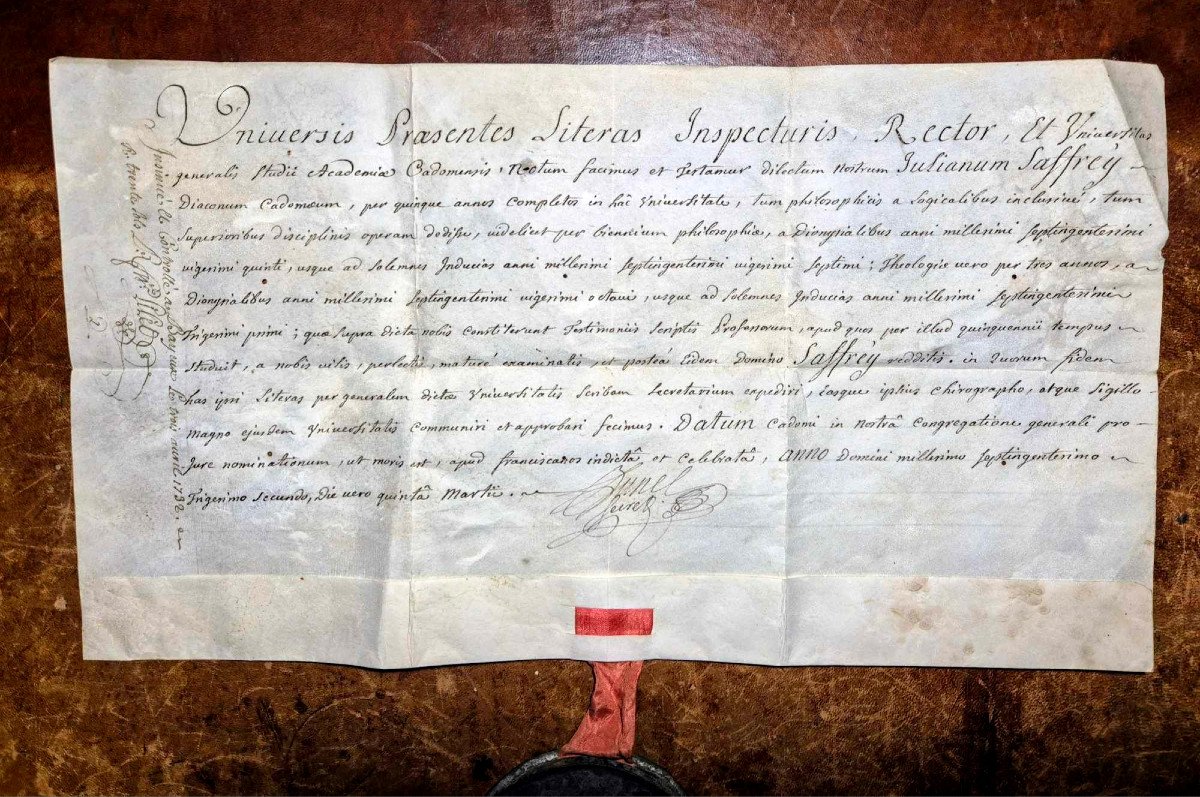 Universis Præsentes Literas Inspecturis, Rector, Et Universitas
generalis Studii Academiæ Cadomensis, Notum facimus et Testamur dilectum nostrum Julianum Saffrey
Diaconum Cadomæum, per quinque annos Completos in hac Universitate, tum philosophicis a logicalibus inclusivè, tum
Superioribus disciplinis operam dedisse, videlicet per biennium philosophiæ, a Dionysialibus anni millesimi Septingentesimi
vigesimi quinti, usque ad Solemnes Inducias anni millesimi Septingentesimi vigesimi Septimi; Theologiæ vero per tres annos, a
Dionysialibus anni millesimi Septingentesimi vigesimi octavi, usque ad Solemnes Inducias anni millesimi Septingentesimi
Trigesimi primi; quæ Supra dicta nobis Constiterunt Testimoniis Scriptis Professorum, apud quos per illud quinquennii tempus
Studuit, a nobis visis, perlectis, maturé examinatis, et posteá Eidem Domino Saffrey redditis. in Quorum fidem
has ipsi Literas per generalem dictæ Universitatis Scribam Secretarium expediri, Easque ipsius Chirographo, atque Sigillo
Magno ejusdem Universitatis Communiri et approbari fecimus. Datum Cadomi in nostrâ Congregatione generali pro
Jure nominationum, ut moris est, apud franciscanos indictâ et Celebratâ, anno Domini millesimo Septingentesimo
Trigesimo Secundo, Die vero quintâ Martii.
Secret
martii 1732.